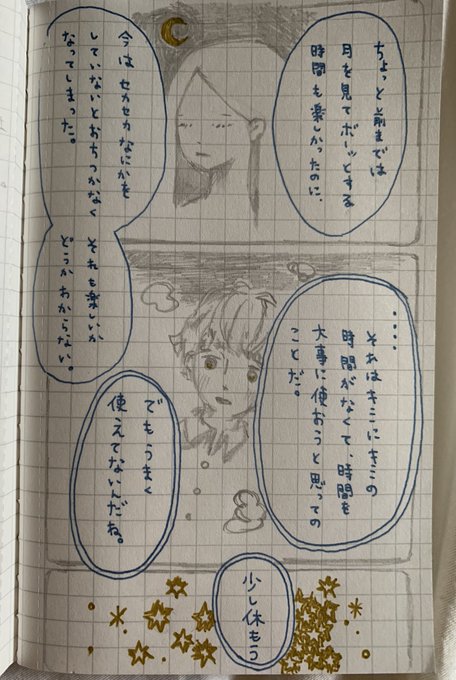 ちょっと前までは
月を見てボーッとする
時間も楽しかったのに、
今はセカセカなにかを
していないとおちつかなく
なってしまった。
それも楽しいか
どうかわからない。
・・・・
それはキミにキミの
時間がなくて、時間を
大事に使おうと思っての
ことだ。
でもうまく
使えてないんだね。
少し休もう